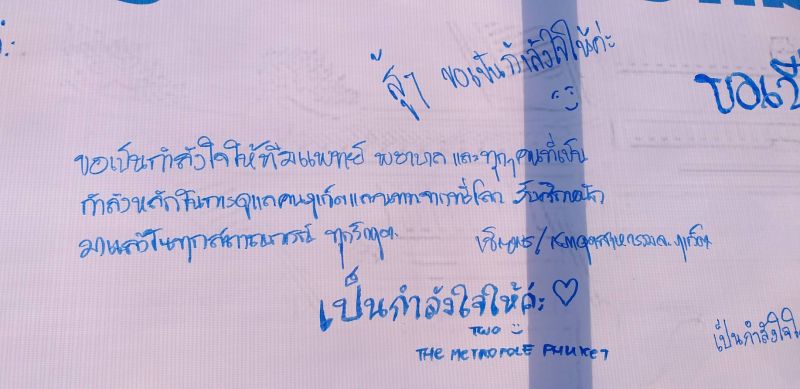 สู้ๆ ขอเป็นกำลังใจให้ค่ะ
ขอเป็น
ขอเป็นกำลังใจให้ทีมแพทย์ พยาบาล และทุกๆคนที่เป็น
กำลังหลักในการดูแลคนภูเก็ตและ
มาแล้วในทุกสถานการณ์ ทุกวิกฤต
เป็นกำลังใจให้ค่ะ ♡
TWO
THE METROPOLE PHUKET
เป็นกำลังใจ